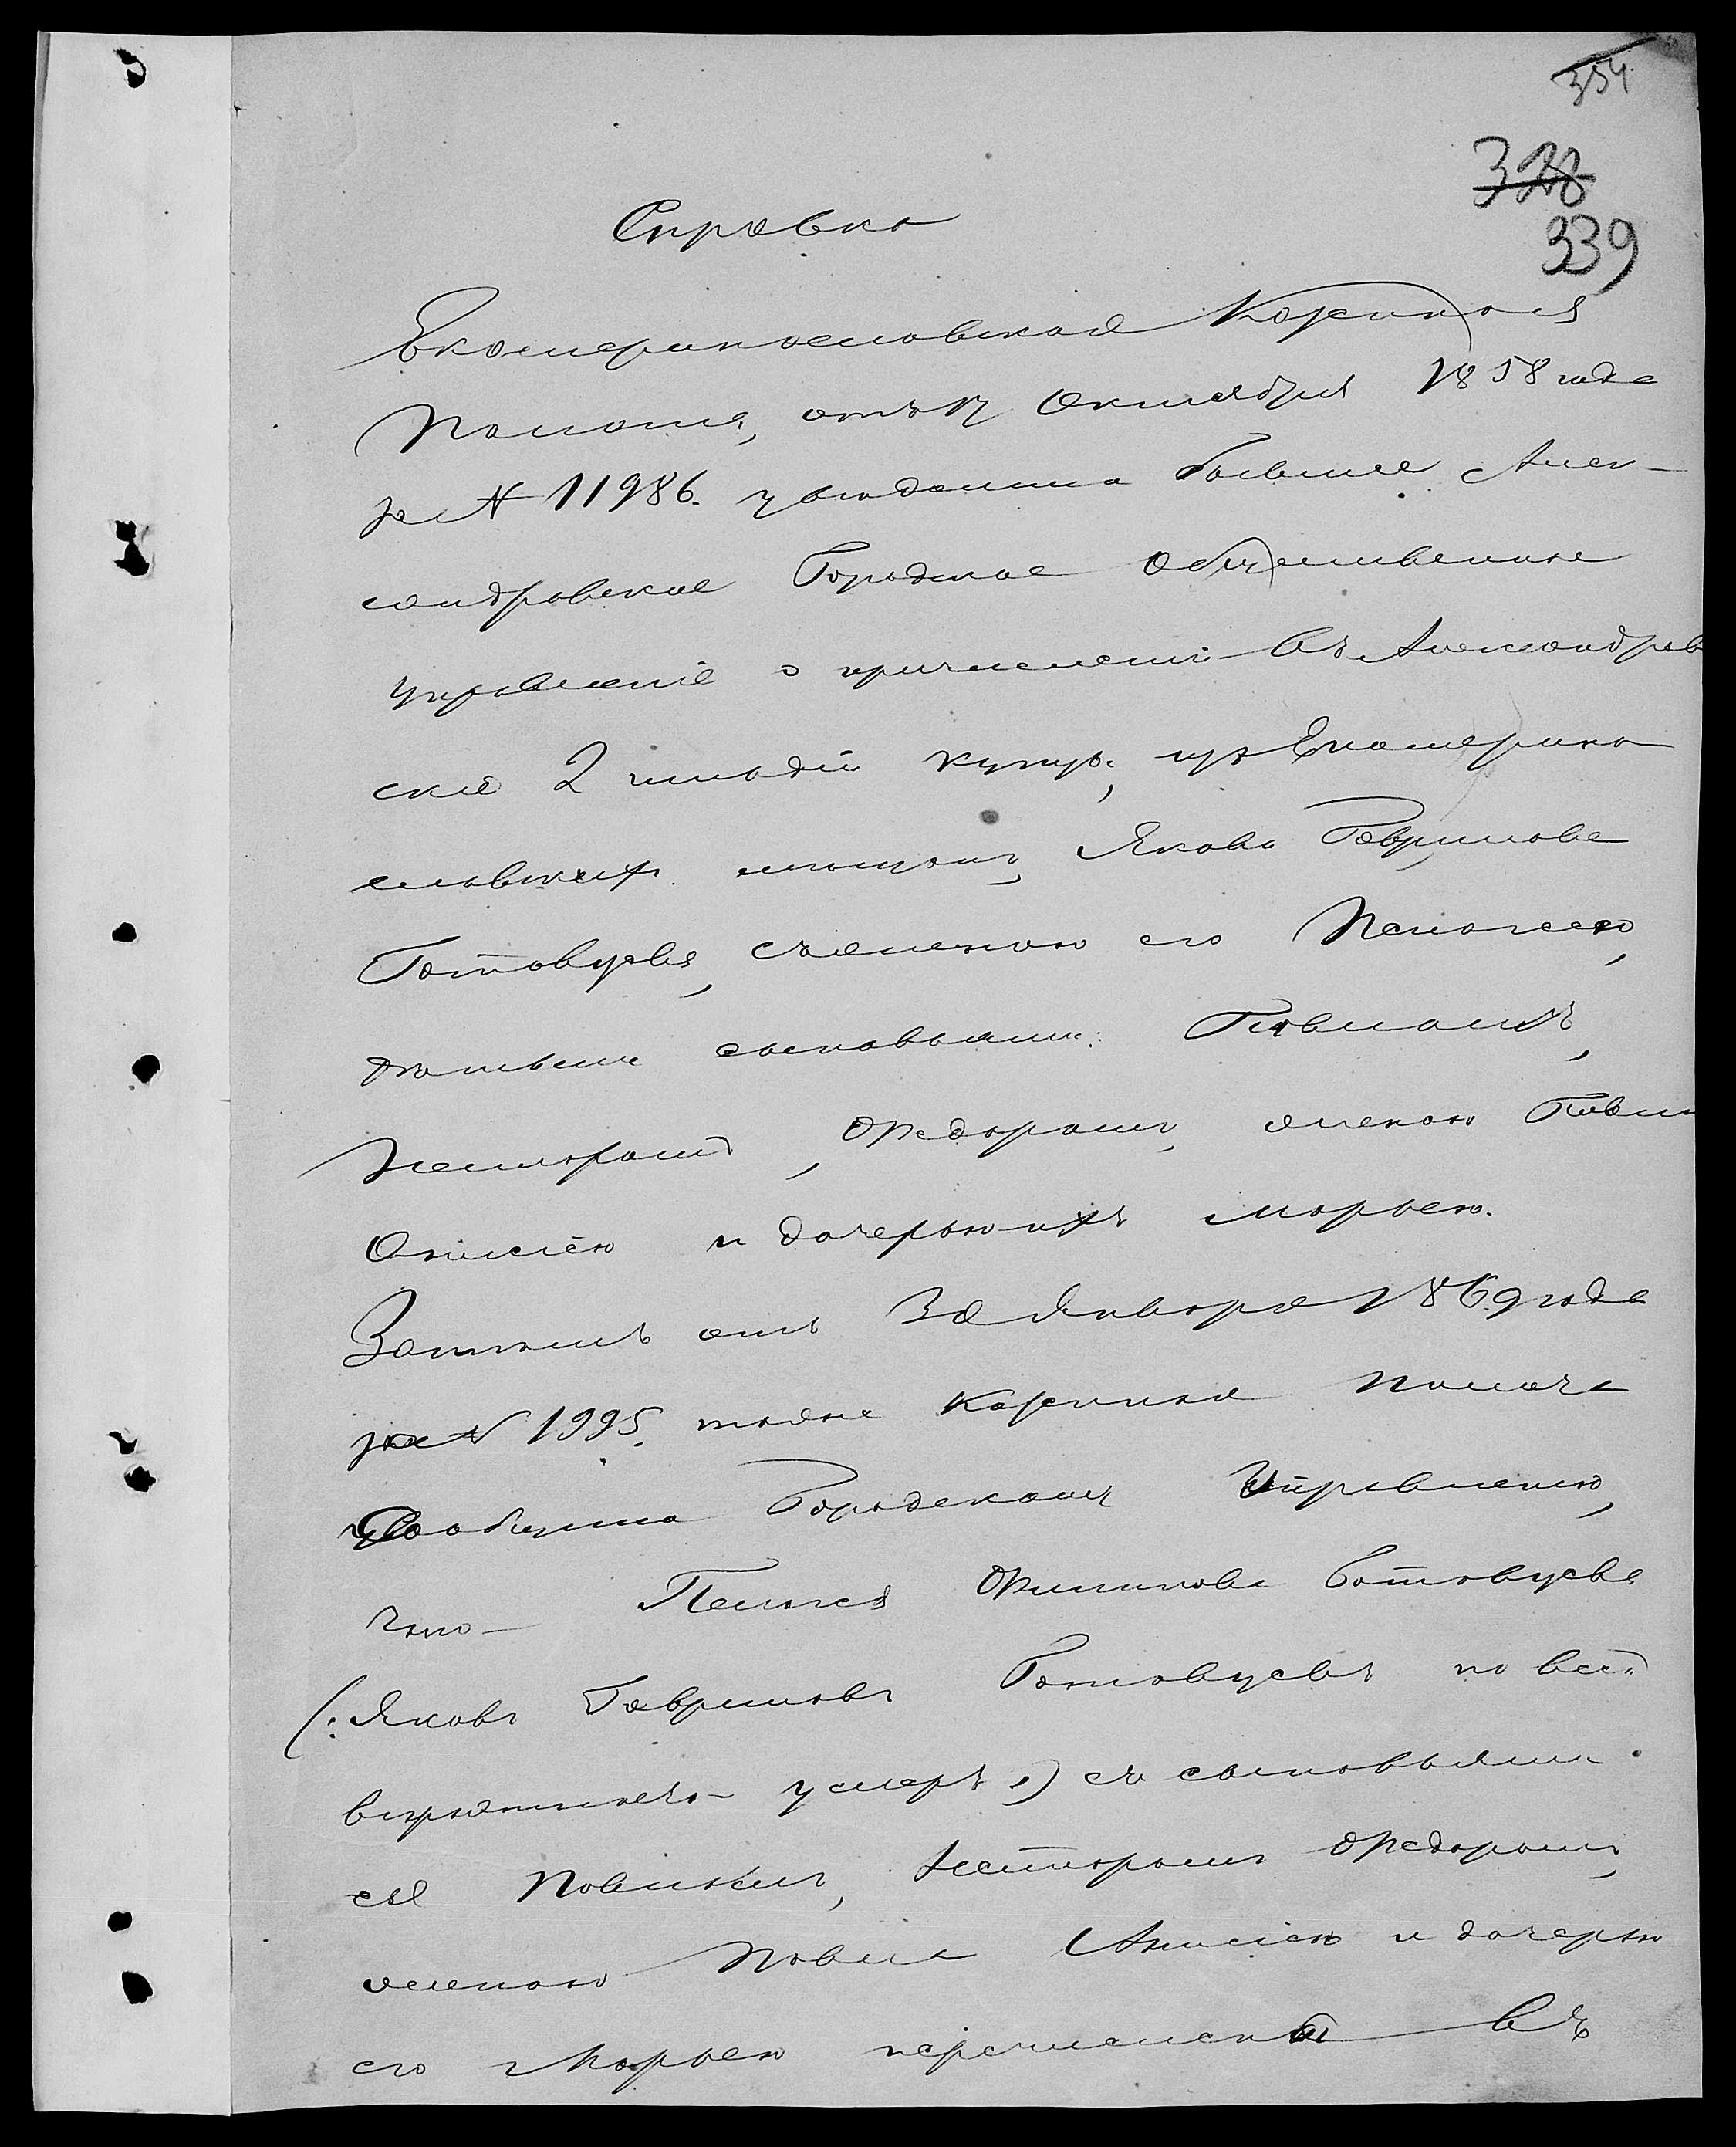 354
328
339
Справка
Екатеринославская Казенная
Палата, отъ 17 Октября 1858 года
за № 11986. увѣдомила бывшее Алек-
сандровское Городское Общественное
Управленіе о причисленіи въ Александров
скіе 2 гильдіи купцы, изъ Екатерино
славскихъ мѣщанъ, Якова Гаврилова
Готовцева, съ женою его Пелагеею,
сыновьями: Павломъ,
Несторомъ, Ѳедоромъ, женою Павла
Анисіею и дочерью ихъ Марьею.
Затѣмъ отъ 30 Января 1869 года
за № 1995. таже Казенная Палата
сообщила Городскому Управленію,
что Пелагея Филипова Готовцева
(: Яковъ Гавриловъ Готовцевъ по всей
вѣроятности умеръ :) съ сыновьями
ея Павломъ, Несторомъ Ѳедоромъ,
женою Павла Анисіею и дочерью
его Марьею перечислены въ